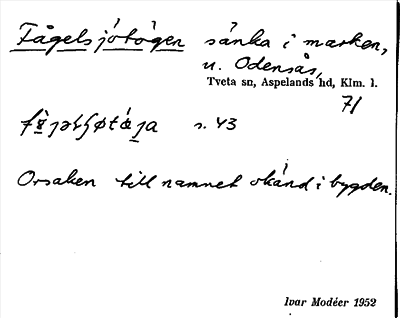 Fågelsjötågen sänka i marken,
u. Odensås,
Tveta sn, Aspelands hd, Klm. l.
71
s. 43
Orsaken till namnet okänd i bygden.
Ivar Modéer 1952